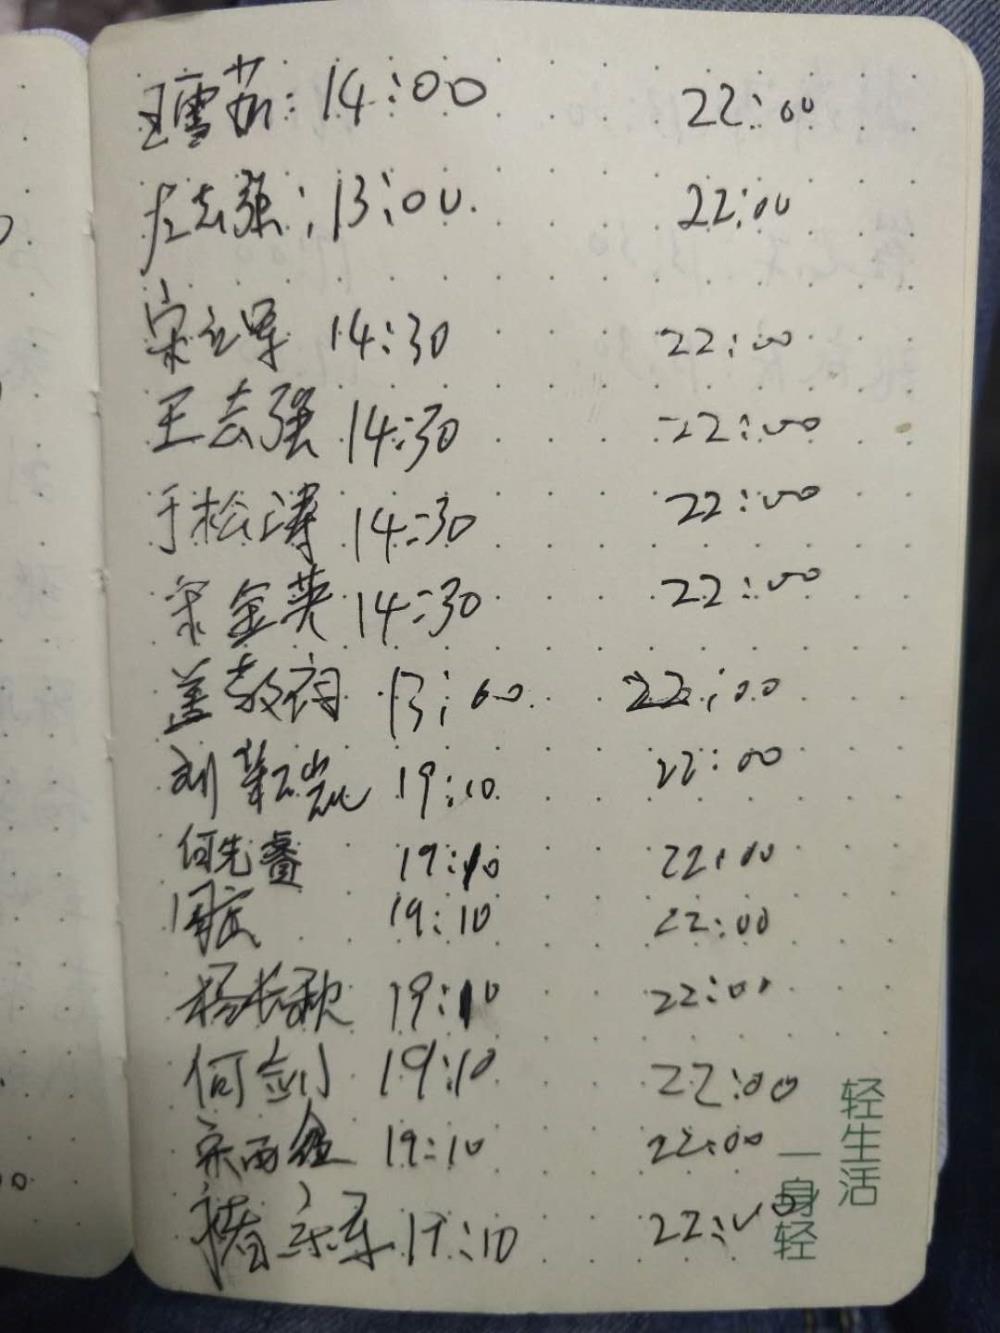 王雪茹：14:00 22:00
左志强：13:00 22:00
宋立军 14:30 22:00
王志强 14:30 22:00
于松涛 14:30 22:00
宋金英 14:30 22:00
盖教词 13:00 22:00
刘 19:10 22:00
何先睿 19:10 22:00
19:10 22:00
杨长秋 19:10 22:00
何剑 19:10 22:00
宋雨鑫 19:10 22:00
褚宗军 19:10 22:00
轻生活
一身轻